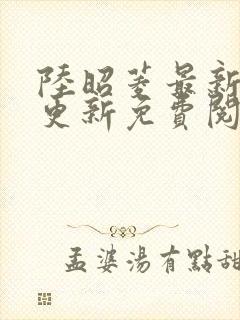 陸昭菱最新
更新免費閱
孟婆湯有點甜